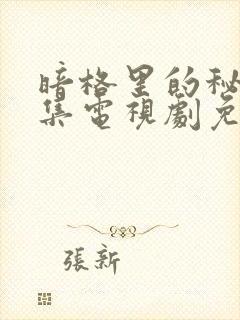 暗格里的秘
集電視劇免
張新